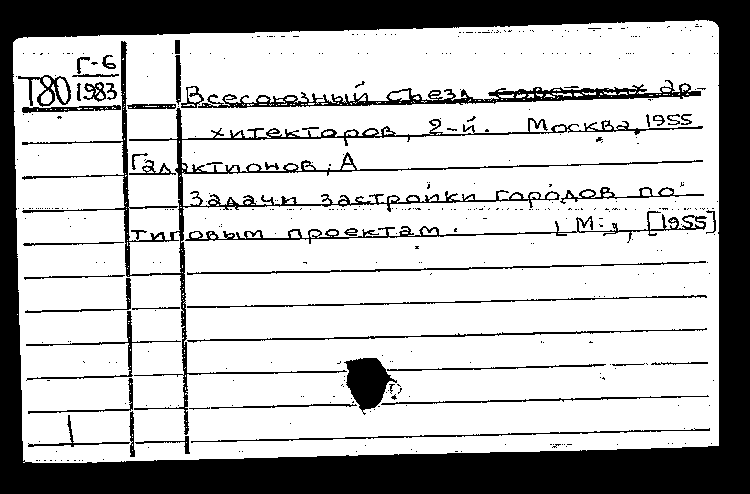 Г-6
Т80 1983
Всесоюзный съезд советских ар-
хитекторов, 2-й. Москва, 1955
Галактионов, А
Задачи застройки городов по
типовым проектам. [М.], [1955]